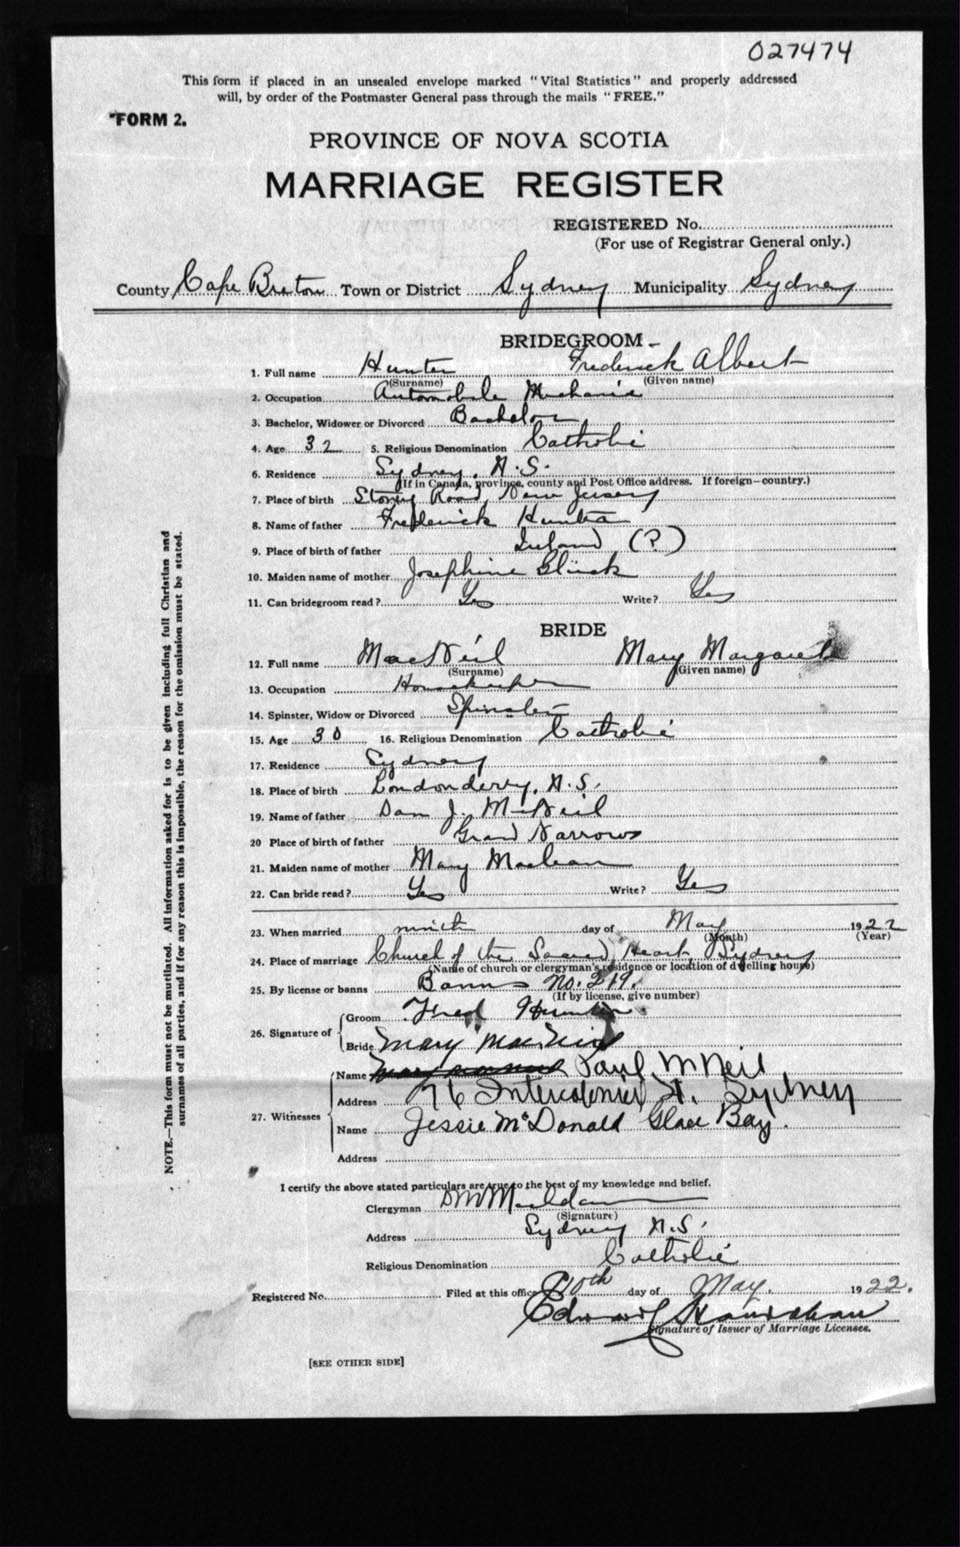 027474
This form if placed in an unsealed envelope marked "Vital Statistics" and properly addressed
will, by order of the Postmaster General pass through the mails "FREE."
FORM 2.
PROVINCE OF NOVA SCOTIA
MARRIAGE REGISTER
REGISTERED No.
(For use of Registrar General only.)
County Cape Breton Town or District Sydney Municipality Sydney
BRIDEGROOM
1. Full name Hunter Frederick Albert
(Surname) (Given name)
2. Occupation Automobile Mechanic
3. Bachelor, Widower or Divorced Bachelor
4. Age 32 5. Religious Denomination Catholic
6. Residence Sydney, N.S.
(If in Canada, province, county and Post Office address. If foreign—country.)
7. Place of birth Stony Road, New Jersey
8. Name of father Frederick Hunter
9. Place of birth of father Ireland (?)
10. Maiden name of mother Josephine Glück
11. Can bridegroom read? Yes Write? Yes
BRIDE
12. Full name MacNeil Mary Margaret
(Surname) (Given name)
13. Occupation Housekeeper
14. Spinster, Widow or Divorced Spinster
15. Age 30 16. Religious Denomination Catholic
17. Residence Sydney
18. Place of birth Londonderry, N.S.
19. Name of father Dan J. McNeil
20 Place of birth of father Grand Narrows
21. Maiden name of mother Mary Maclean
22. Can bride read? Yes Write? Yes
23. When married ninth day of May 1922
(Month) (Year)
24. Place of marriage Church of the Sacred Heart, Sydney
(Name of church or clergyman's residence or location of dwelling house)
25. By license or banns Banns No. 219.
(If by license, give number)
26. Signature of
Groom Fred Hunter
Bride Mary MacNeil
27. Witnesses
Name Paul McNeil
Address 76 Intercolonial St. Sydney
Name Jessie McDonald Glace Bay.
Address
I certify the above stated particulars are true to the best of my knowledge and belief.
Clergyman
(Signature)
Address Sydney N.S.
Religious Denomination Catholic
Registered No. Filed at this office 10th day of May. 1922.
Edward
Signature of Issuer of Marriage Licenses.
[SEE OTHER SIDE]
NOTE.—This form must not be mutilated. All information asked for is to be given including full Christian and
surnames of all parties, and if for any reason this is impossible, the reason for the omission must be stated.